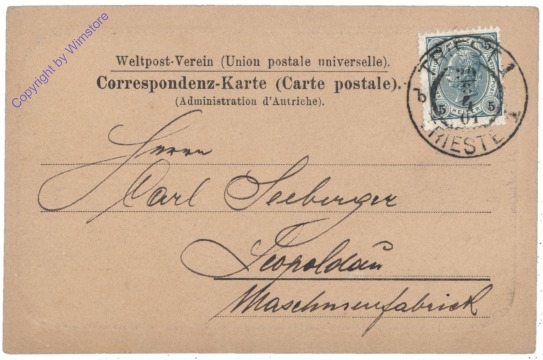 Copyright by Wimstore
Weltpost-Verein (Union postale universelle).
Correspondenz-Karte (Carte postale).
(Administration d'Autriche).
TRIEST 1
5 5
01
TRIESTE 1
Herrn
Carl Seeberger
Leopoldau
Maschinenfabrick